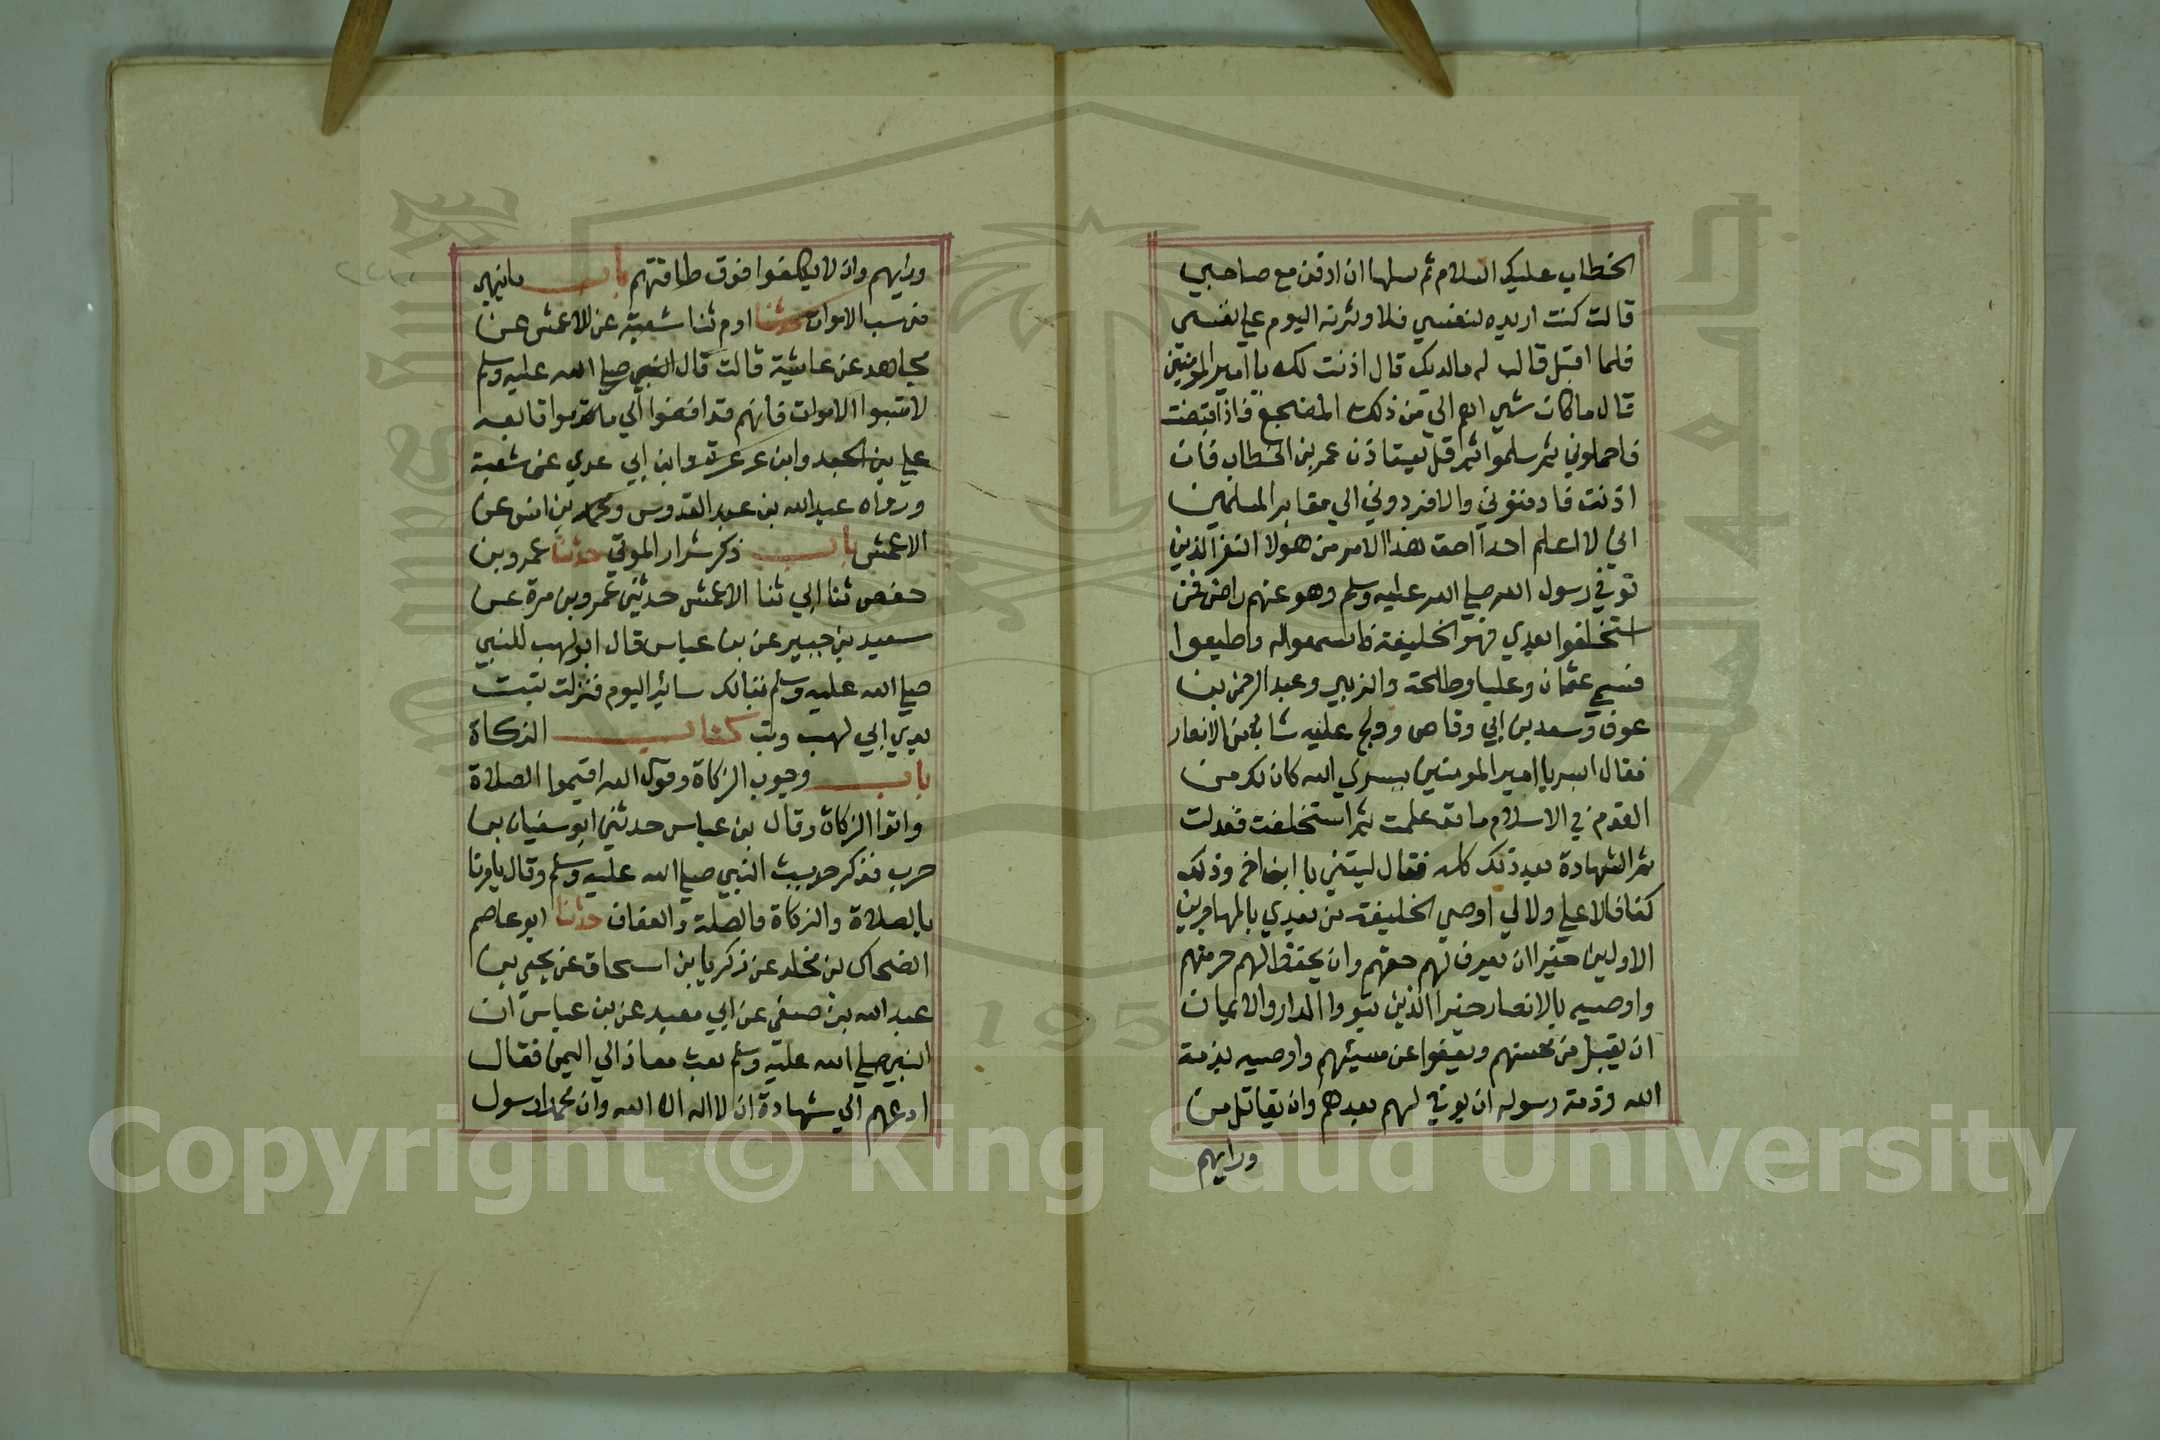 الخطاب عليك السلام ثم سلها ان ادفن مع صاحبي
قالت كنت اريده لنفسي فلاوثرنه اليوم علي نفسي
فلما اقبل قال له مالديك قال اذنت لك يا امير المومنين
قال ما كان شي اهم الي من ذلك المضجع فاذا قبضت
فاحملوني ثم سلموا ثم قل يستاذن عمر بن الخطاب فان
اذنت فادفنوني والا فردوني الي مقابر المسلمين
اني لا اعلم احدا احق بهذا الامر من هولا النفر الذين
توفي رسول الله صلي الله عليه وسلم وهو عنهم راض فمن
استخلفوا بعدي فهو الخليفة فاسمعوا له واطيعوا
فسمي عثمان وعليا وطلحة والزبير وعبد الرحمن بن
عوف وسعد بن ابي وقاص وولج عليه شاب من الانصار
فقال ابشر يا امير المومنين ببشري الله كان لك من
القدم في الاسلام ما قد علمت ثم استخلفت فعدلت
ثم الشهادة بعد ذلك كله فقال ليتني يا ابن اخي وذلك
كفافا لا علي ولا لي اوصي الخليفة من بعدي بالمهاجرين
الاولين خيرا ان يعرف لهم حقهم وان يحفظ لهم حرمتهم
واوصيه بالانصار خيرا الذين تبووا الدار والايمان
ان يقبل من محسنهم ويعفوا عن مسيئهم واوصيه بذمة
الله وذمة رسوله ان يوفي لهم بعدهم وان يقاتل من
ورايهم
ورايهم وان لا يكلفوا فوق طاقتهم باب ماينهي
من سب الاموات حدثنا ادم ثنا شعبة عن الاعمش عن
مجاهد عن عايشة قالت قال النبي صلي الله عليه وسلم
لا تسبوا الاموات فانهم قد افضوا الي ما قدموا تابعه
علي بن الجعد وابن عرعرة وابن ابي عدي عن شعبة
ورواه عبد الله بن عبد القدوس ومحمد بن انس عن
الاعمش باب ذكر شرار الموتي حدثنا عمرو بن
حفص ثنا ابي ثنا الاعمش حدثني عمرو بن مرة عن
سعيد بن جبير عن بن عباس قال ابو لهب للنبي
صلي الله عليه وسلم تبا لك ساير اليوم فنزلت تبت
يدي ابي لهب وتب كتاب الزكاة
باب وجوب الزكاة وقول الله اقيموا الصلاة
واتوا الزكاة وقال بن عباس حدثني ابو سفيان بن
حرب فذكر حديث النبي صلي الله عليه وسلم وقال يامرنا
بالصلاة والزكاة والصلة والعفاف حدثنا ابو عاصم
الضحاك بن مخلد عن زكريا بن اسحاق عن يحيي بن
عبد الله بن صيفي عن ابي معبد عن بن عباس ان
النبي صلي الله عليه وسلم بعث معاذ الي اليمن فقال
ادعهم الي شهادة ان لا اله الا الله وان محمدا رسول
1957
Copyright © King Saud University